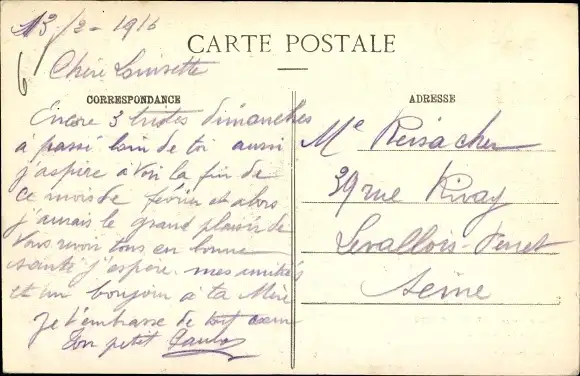 13/2-1916
6
CARTE POSTALE
Chère Louisette
CORRESPONDANCE
ADRESSE
Encore 3 tristes dimanches
à passé loin de toi aussi
j'aspire à voir la fin de
ce mois de février et alors
j'aurais le grand plaisir de
vous revoir tous en bonne
santé j'espère. mes amitiés
et un bonjour à ta Mère
Je t'embrasse de tout cœur
Ton petit
Me Reisacher
39 rue Rivay
Levallois-Perret
Seine